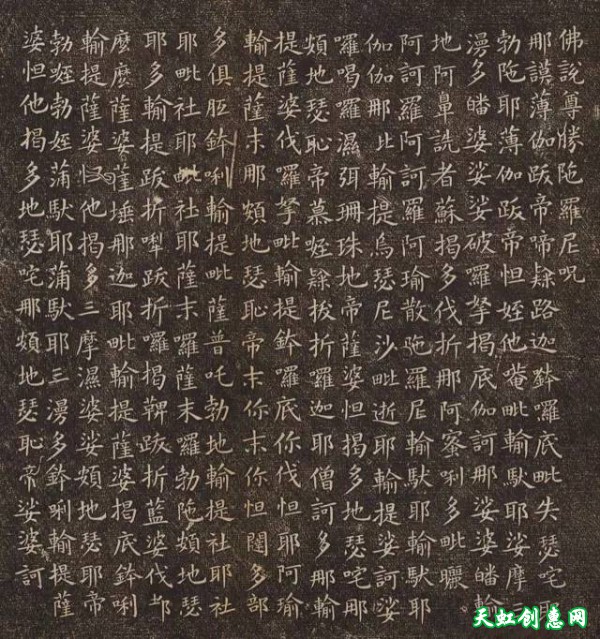 佛說尊勝陁羅尼呪
那謨薄伽跋帝啼㘑路迦鉢羅底毗失瑟咤耶
勃陁耶薄伽跋帝怛姪他唵毗輸馱耶娑摩三
漫多皤婆娑娑破羅拏揭底伽訶那娑婆皤輸
地阿鼻詵者蘇揭多伐折那阿蜜唎多毗曬
阿訶羅阿訶羅阿瑜散陁羅尼輸馱耶輸馱耶
伽伽那毗輸提烏瑟尼沙毗逝耶輸提娑訶娑
囉喝囉濕弭珊珠地帝薩婆怛揭多地瑟咤那
頞地瑟恥帝慕姪㘑拔折囉迦耶僧訶多那輸
提薩婆伐羅拏毗輸提鉢羅底你伐怛耶阿瑜
輸提薩末那頞地瑟恥帝末你末你怛闥多部
多俱胝鉢唎輸提毗薩普吒勃地輸提社耶社
耶毗社耶毗社耶薩末羅薩末羅勃陁頞地瑟
耶多輸提跋折犁跋折囉揭鞞跋折藍婆伐都
麼麼薩婆薩埵那迦耶毗輸提薩婆揭底鉢唎
輸提薩婆怛他揭多三摩濕婆娑頞地瑟耶帝
勃姪勃姪蒲馱耶蒲馱耶三漫多鉢唎輸提薩
婆怛他揭多地瑟咤那頞地瑟恥帝娑婆訶
天虹创惠网